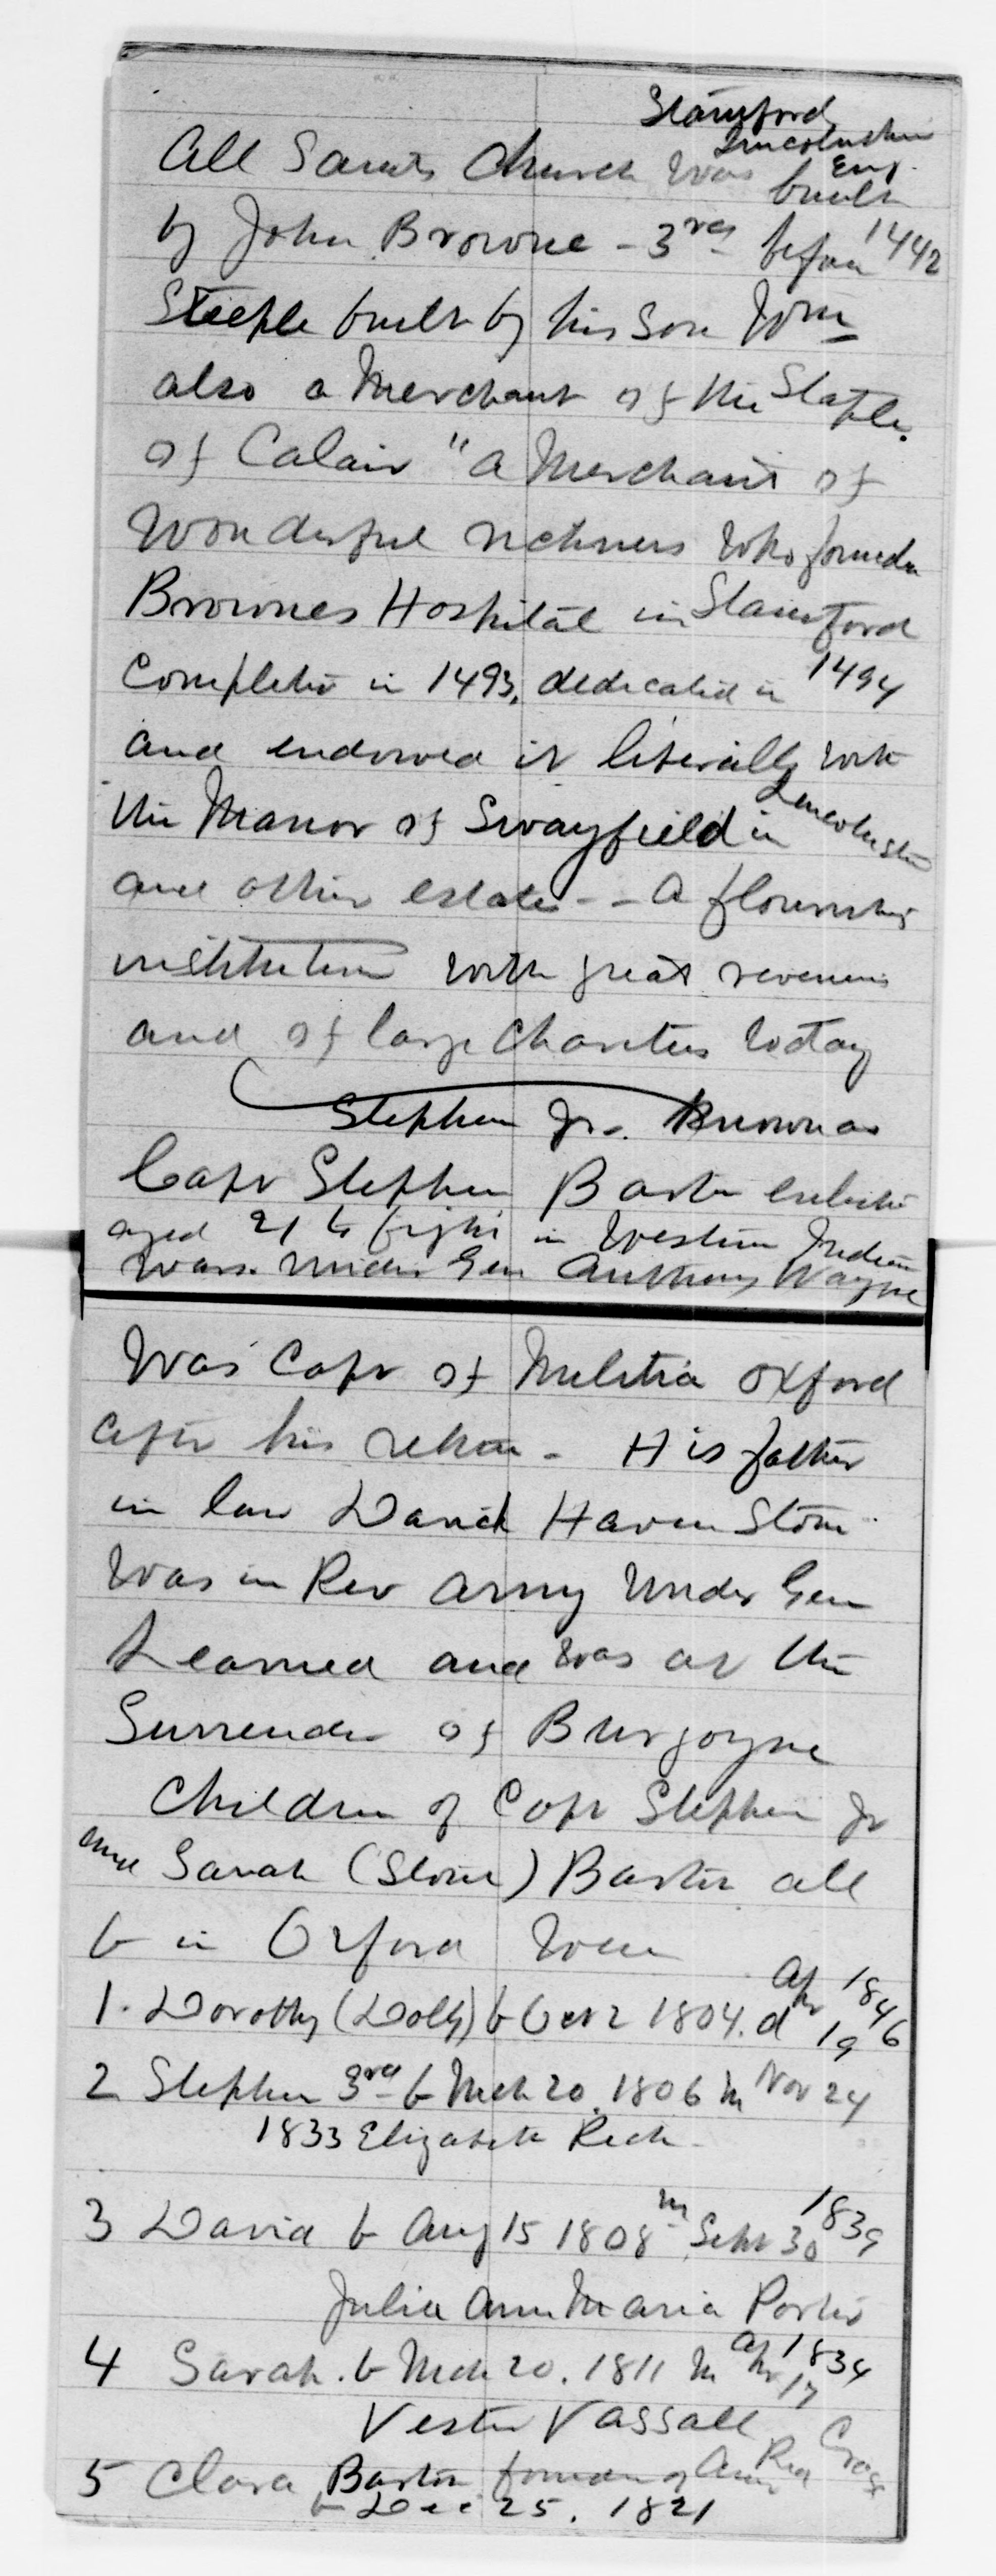 Stamford
Lincolnshire
Eng.
All Saints Church was built
by John Browne - 3rd before 1442
Steeple built by his son John
also a Merchant of the Staple
of Calais "a Merchant of
wonderful richness who founded
Brownes Hospital in Stamford
Completed in 1493, dedicated in 1494
and endowed it liberally with
the Manor of Swayfield in Lincolnshire
and other estates -- a flourishing
institution with great revenues
and of large Charities today
Stephen Jr. Known as
Capt Stephen Barton enlisted
aged 21 to fight in Western Indian
Wars. Under Gen Anthony Wayne
Was Capt of Militia Oxford
after his return - His father
in law David Haven Stone
Was in Rev Army Under Gen
Learned and was at the
Surrender of Burgoyne
Children of Capt Stephen Jr
and Sarah (Stone) Barton all
b in Oxford were
1. Dorothy (Dolly) b Oct 2 1804. d Apr 19 1846
2 Stephen 3rd b Mch 20. 1806 m Nov 24
1833 Elizabeth Rich
3 David b Aug 15 1808 m Sept 30 1839
Julia Ann Maria Porter
4 Sarah. b Mch 20. 1811 m Apr 17 1834
Vester Vassall
5 Clara Barton founder of Amer Red Cross
b Dec 25. 1821